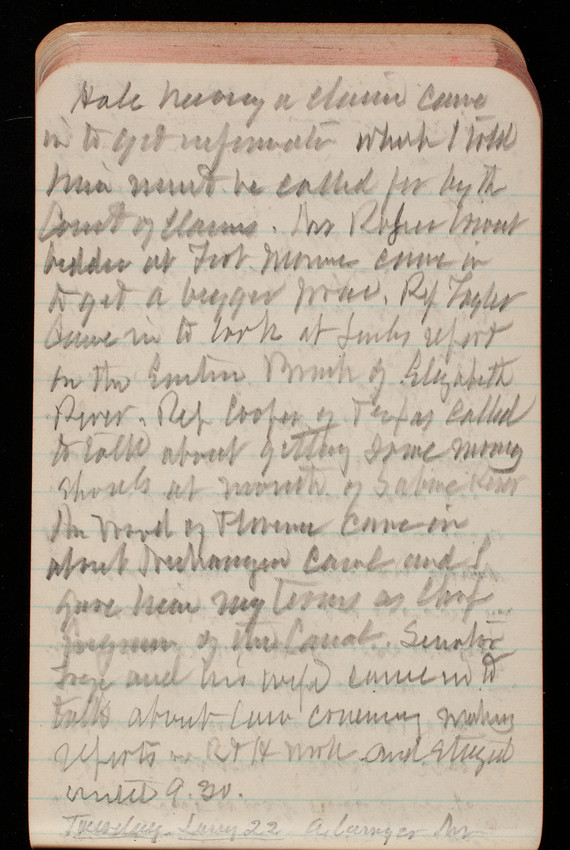 Hale having a claim came
in to get information which I told
him must be called for by the
Court of Claims. Mr Rogers lowest
bidder at Fort Monroe came in
to get a bigger price. Rep Taylor
came in to look at report
on the Eastern Branch of Elizabeth
River. Rep Cooper of Texas called
to talk about getting some money
at mouth of Sabine River
Mr Wood of Florence came in
about Nicaragua Canal and I
gave him my terms as Chief
Engineer of the Canal. Senator
Frye and his wife came in to
talk about law concerning making
reports on R & H work and stayed
until 9.30.
Tuesday Jany 22 A lawyer Mr